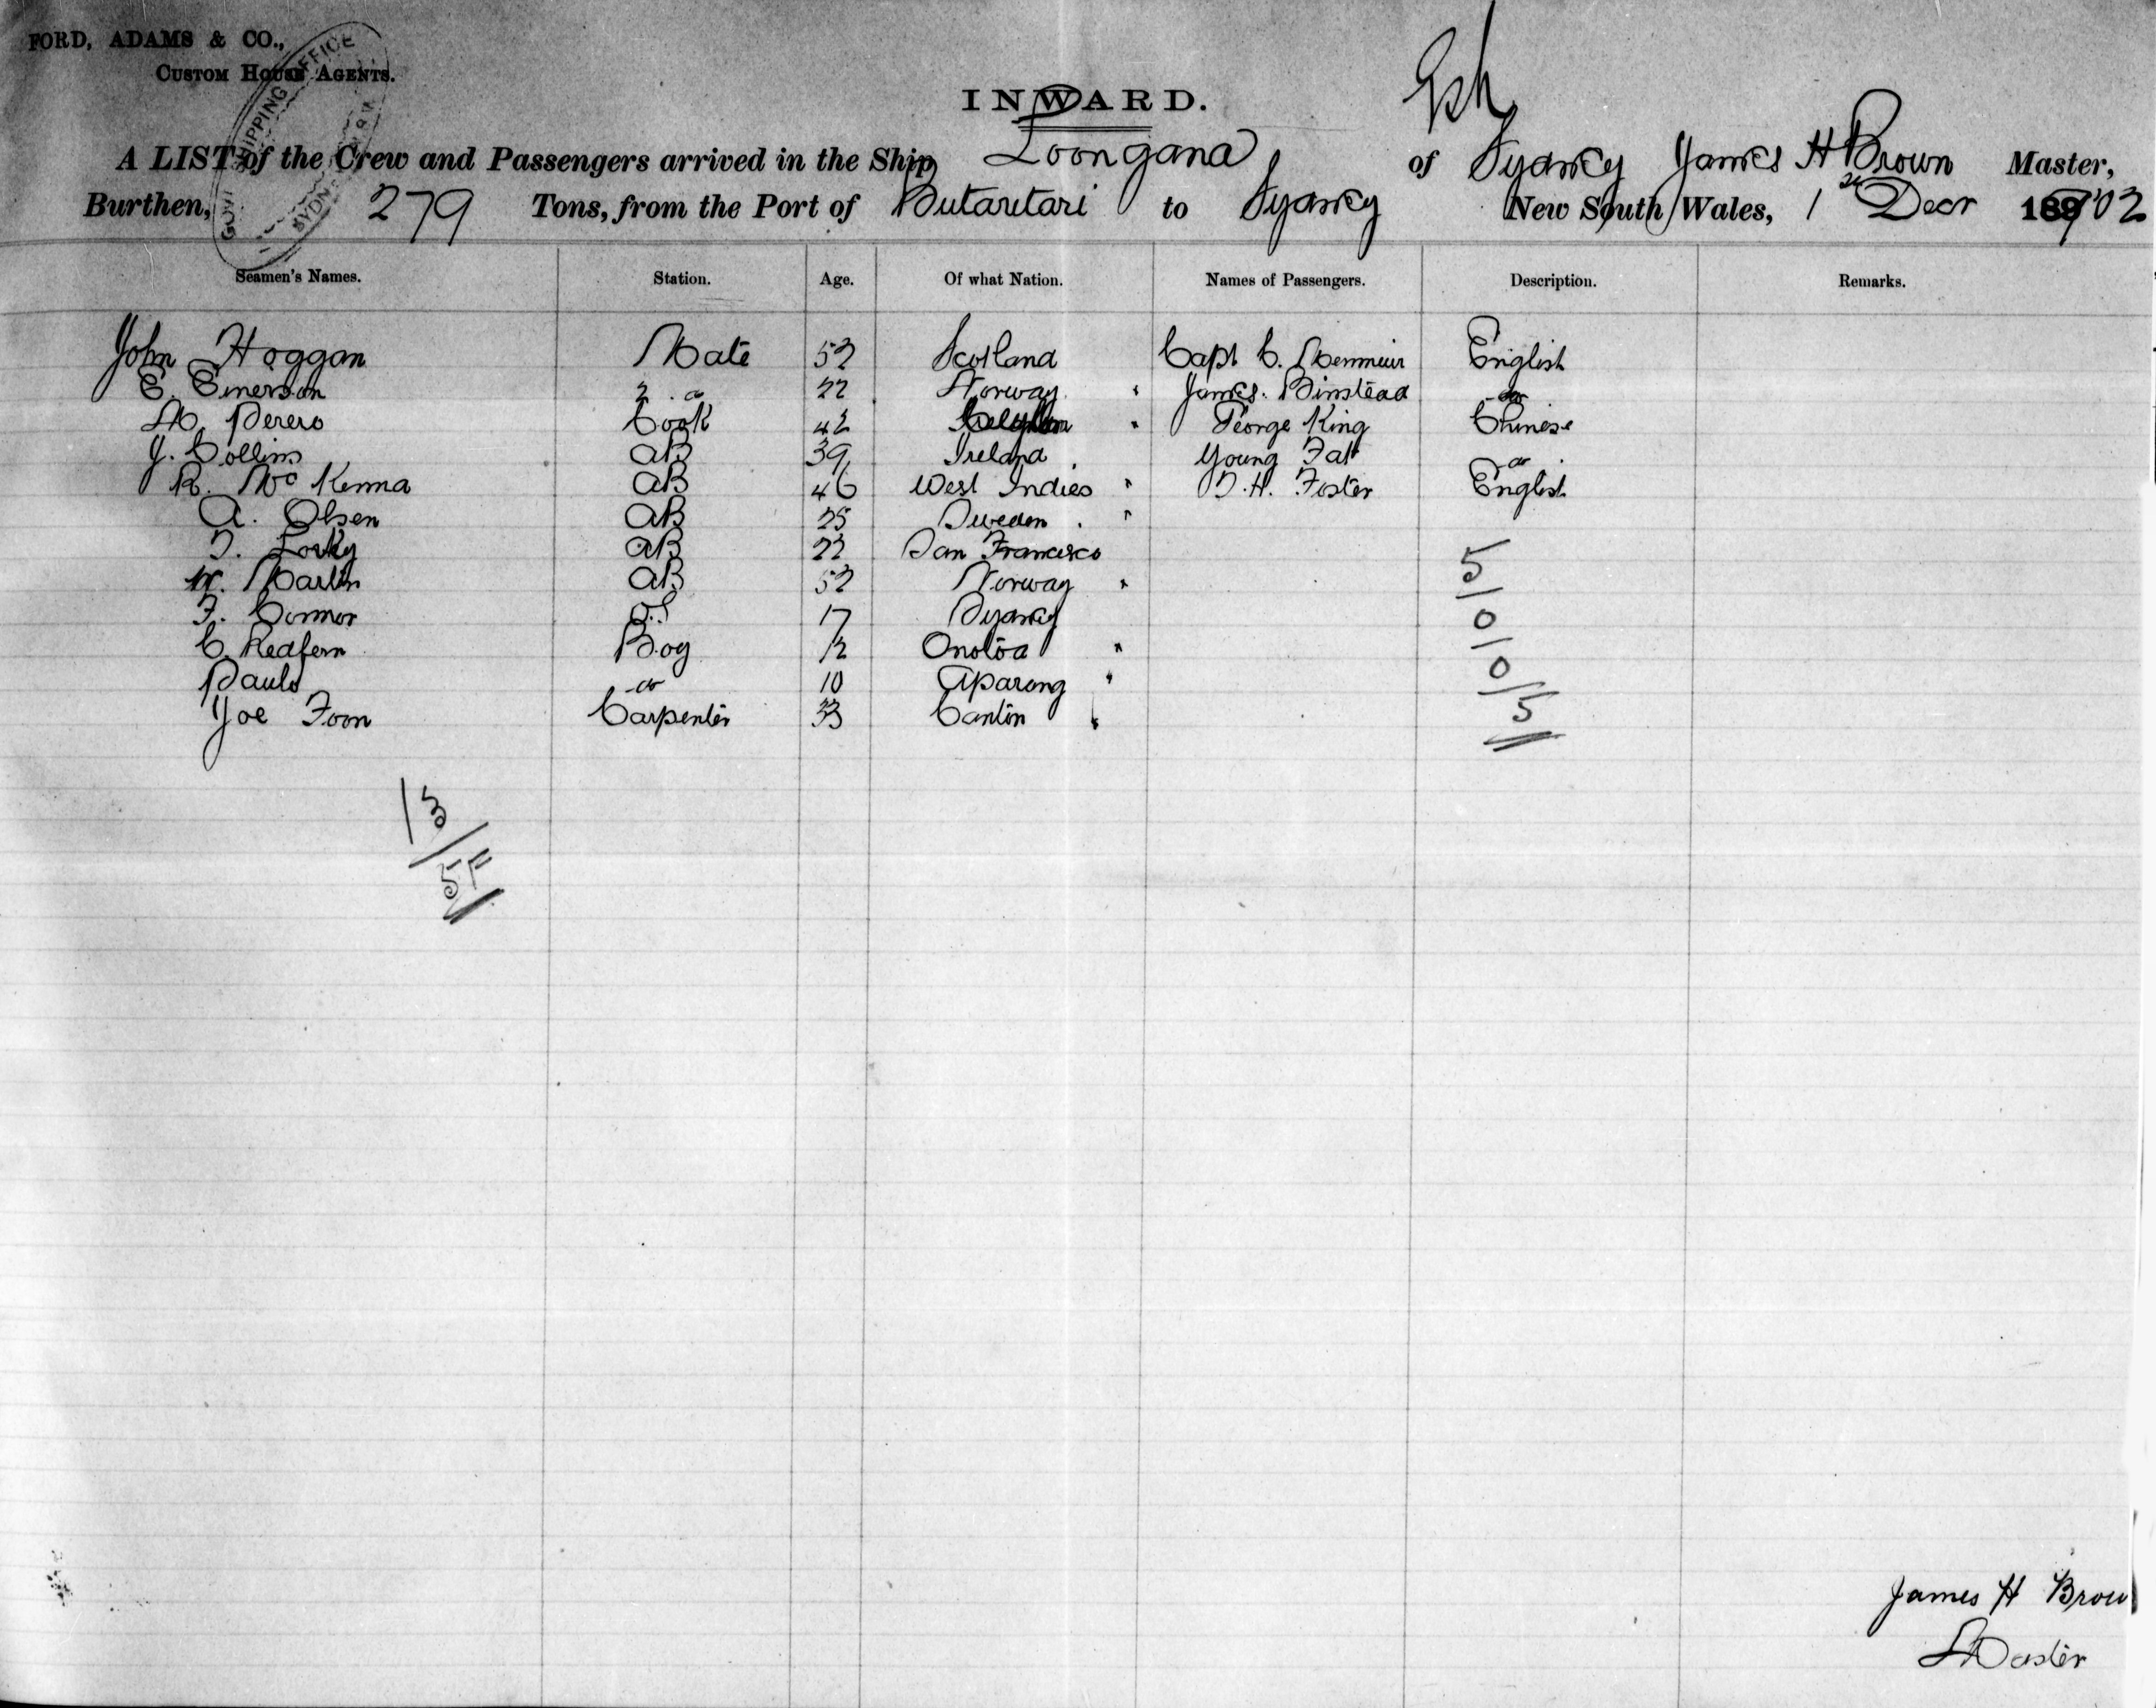 FORD, ADAMS & CO.,
CUSTOM HOUSE AGENTS.
GOVT SHIPPING OFFICE
SYDNEY
INWARD.
A LIST of the Crew and Passengers arrived in the Ship Loongana of Sydney James H Brown Master,
Burthen, 279 Tons, from the Port of Butaritari to Sydney New South Wales, 1st Decr 1902
Seamen's Names. Station. Age. Of what Nation. Names of Passengers. Description. Remarks.
John Hoggan Mate 52 Scotland Capt C. Menmuir English
E. Emerson 2 do 22 Norway " James Binstead do
M. Perero Cook 42 " George King Chinese
J. Collins AB 39 Ireland Young Fat do
R. McKenna AB 46 West Indies " T. H. Foster English
A. Olsen AB 25 Sweden "
T. AB 22 San Francisco
W. Martin AB 52 Norway "
F. Connor OS 17 Sydney
C. Redfern Boy 12 Onotoa "
Paulo do 10 Aparong "
Joe Foon Carpenter 33 Canton "
5/0/0/5
13/5F
James H Brow
Master